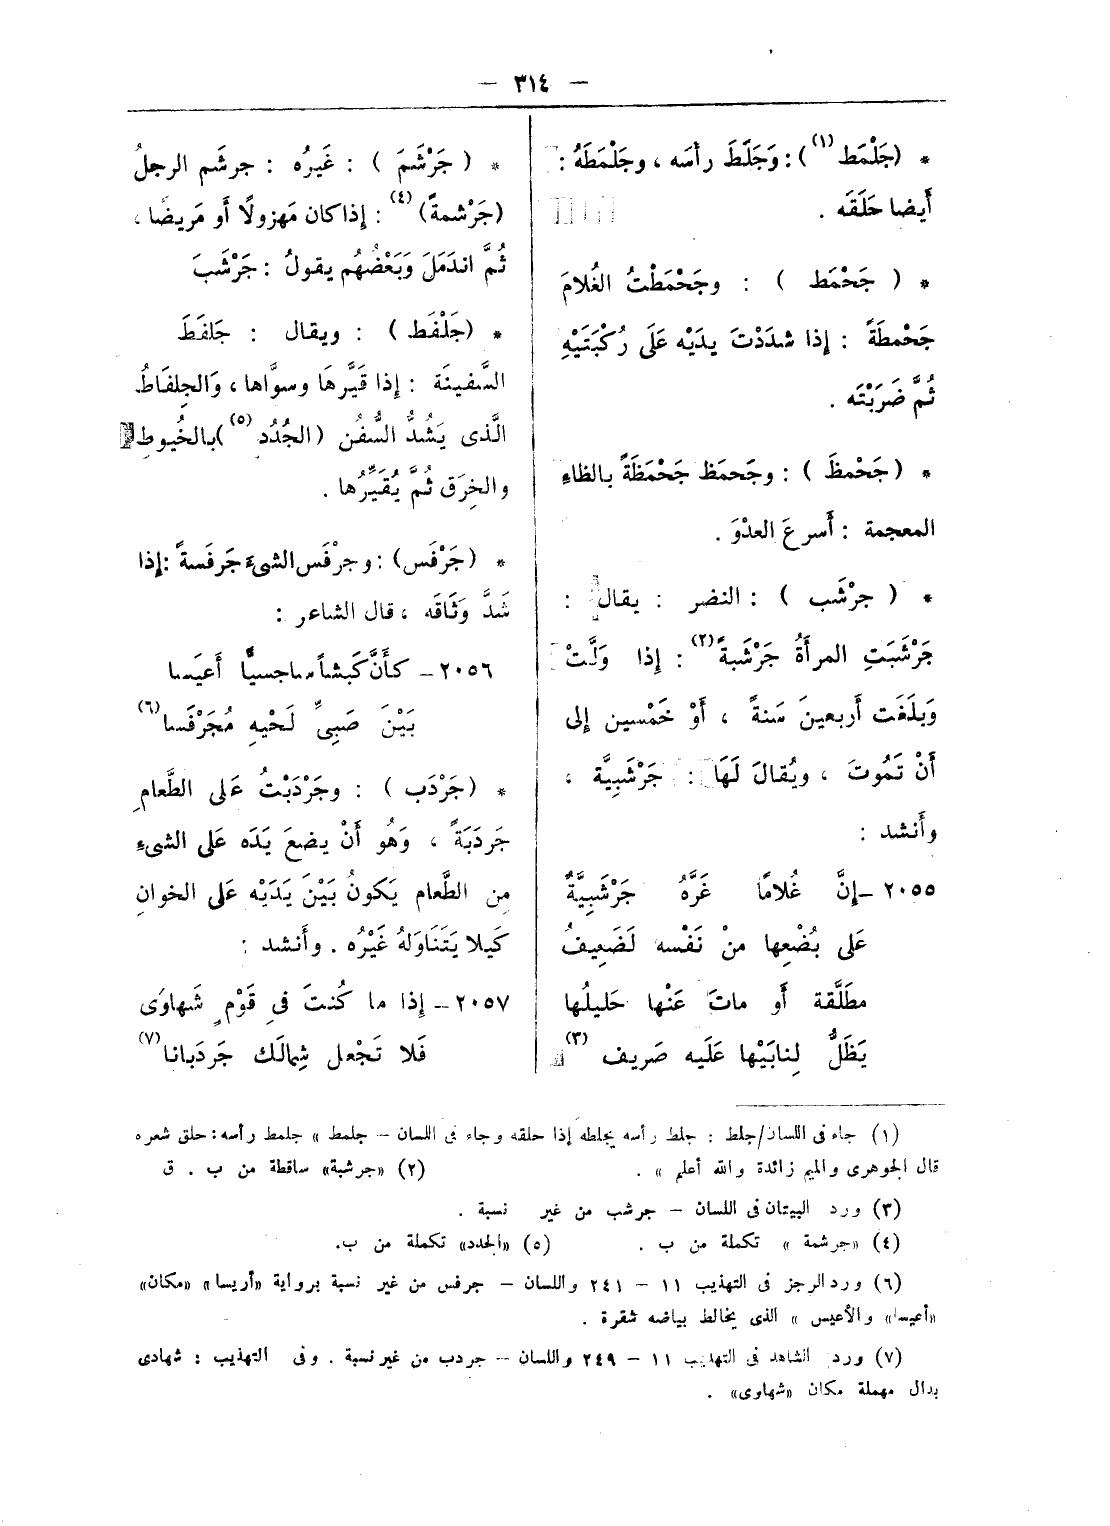 — ٣١٤ —
* (جَلْمَط(١)): وَجَلَطَ رأسَه ، وجَلْمَطَهُ :
أَيضا حَلَقَه .
* ( جَحْمَط ) : وجَحْمَطْتُ الغُلامَ
جَحْمطَةً : إذا شدَدْتَ يديْه عَلَى رُكْبَتَيْهِ
ثُمَّ ضَرَبْتَه .
* (جَحْمظَ ) : وجَحمَظ جَحْمَظَةً بالظاءِ
المعجمة : أَسرعَ العدْوَ .
* ( جرْشَب ) : النضر : يقال :
جَرْشَبَتِ المرأَةُ جَرْشَبةً(٢) : إذا وَلَّتْ
وَبَلَغَت أَربعينَ سَنةً ، أَوْ خَمْسين إلى
أَنْ تَمُوتَ ، ويُقالَ لَهَا : جَرْشَبِيَّة ،
وأَنشد :
٢٠٥٥ – إنَّ غُلامًا غَرَّهُ جَرْشَبِيَّةٌ
عَلى بُضْعِها منْ نَفْسه لَضَعِيفُ
مطَلَّقة أَو ماتَ عَنْها حَليلُها
يَظَلُّ لِنابَيْها عَلَيه صَريف (٣)
* ( جَرْشَمَ ) : غَيرُه : جرشَم الرجلُ
(جَرْشمةً)(٤) : إذا كان مَهزولًا أَو مَريضًا ،
ثُمَّ اندَمَلَ وَبَعْضُهُم يقولُ : جَرْشَبَ
* (جَلْفَط ) : ويقال : جَلفَطَ
السَّفينَة : إذا قَيَّرهَا وسوَّاها ، وَالجِلفَاطُ
الَّذى يَشدُّ السُّفُن (الجُدُد(٥))بالخُيوطِ
والخِرَق ثُمَّ يُقَيِّرُها .
* (جَرْفَس) : وجرْفَس الشىءَ جَرفَسةً : إذا
شَدَّ وَثَاقَه ، قال الشاعر :
٢٠٥٦ – كأَنَّ كَبشاً ساجسيًّا أَعيَسا
بَيْنَ صَبِىِّ لَحْيهِ مُجَرْفَسا(٦)
* (جَرْدَب ) : وجَرْدَبْتُ عَلى الطَّعامِ
جَردَبَةً ، وَهُو أَنْ يضعَ يَدَه عَلى الشىءِ
مِن الطَّعام يَكونُ بَيْنَ يَدَيْه عَلى الخوانِ
كَيلا يَتَنَاوَلهُ غَيْرُه . وأَنشد :
٢٠٥٧ – إذا ما كُنتَ فى قَوْمٍ شَهاوَى
فَلا تَجْعل شِمالَك جَردَبانا(٧)
(١) جاء فى اللسان/جلط : جلط رأسه يجلطه إذا حلقه وجاء فى اللسان – جلمط » جلمط رأسه : حلق شعره
قال الجوهرى والميم زائدة والله أعلم » . (٢) «جرشبة» ساقطة من ب . ق
(٣) ورد البيتان فى اللسان – جرشب من غير نسبة .
(٤) «جرشمة » تكملة من ب . (٥) «الجدد» تكملة من ب.
(٦) ورد الرجز فى التهذيب ١١ – ٢٤١ واللسان – جرفس من غير نسبة برواية «أريسا» «مكان»
«أعيسا» والأعيس » الذى يخالط بياضه شقرة .
(٧) ورد الشاهد فى التهذيب ١١ – ٢٤٩ واللسان – جردب من غير نسبة . وفى التهذيب : شهادى
بدال مهملة مكان «شهاوى» .